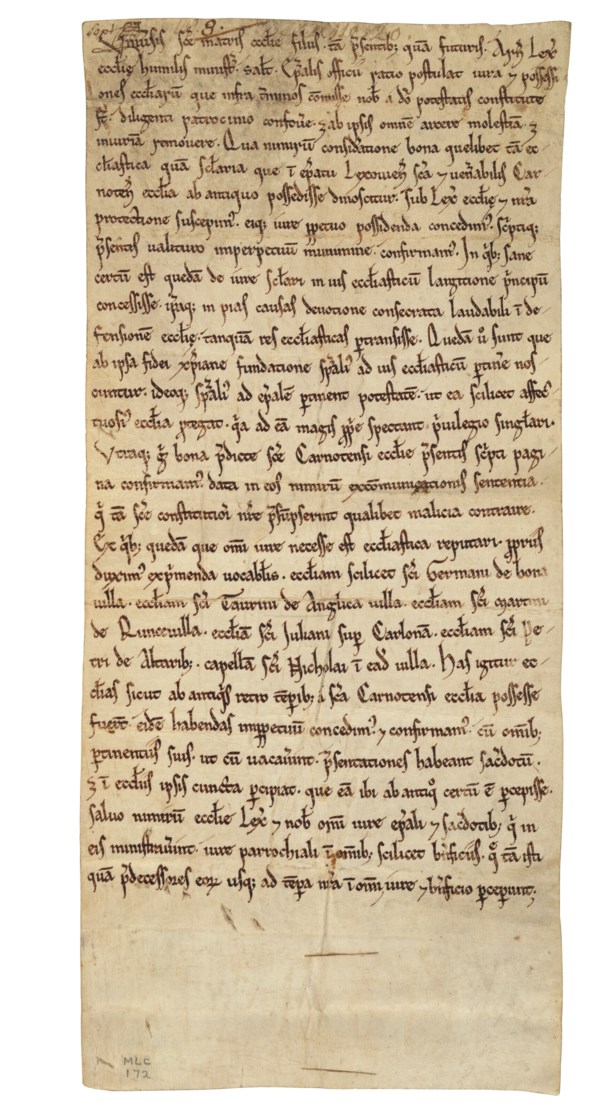 Universis sce matris ecclie filiis tā psentib; quā futuris. Lex
ecclie humilis ministr. salt. Epalis officii ratio postulat iura ⁊ possessi
ones eccliarū que infra tminos cōmisse nob a do potestatis constitute
st. diligenti patrocinio confoue. ⁊ ab ipsis omnē arcere molestiā. ⁊
iniuriā removere. Qua nimirū considatione bona quelibet tā ec
cliastica quā sclaria que ī epatu Lexoviens sca ⁊ venabilis Car
notens ecclia ab antiquo possedisse dinoscitur. sub Lex ecclie ⁊ nra
protectione suscepim'. eiq; iure ppetuo possidenda concedim'. scptiq;
psentis valituro imperpetuū munimine confirmam'. In qb; sane
certū est quedā de iure sclari in ius eccliasticū largitione pncipū
concessisse. ipaq; in pias causas devotione consecrata laudabili ī de
fensionē ecclie. tanquā res eccliasticas ptransisse. Quedā ũ sunt que
ab ipsa fidei xpiane fundatione spali' ad ius eccliasticū ptine nos
cuntur. ideoq; spali' ad epalē ptinent potestatē. ut ea scilicet affec
tuosi' ecclia ptegat. qa ad eā magis pprie spectant pvilegio singlari.
Utraq; g bona pdicte sce Carnotensi ecclie psentis scpti pagi
na confirmam'. data in eos nimirū excōmunicationis sententia.
q tā sce constitutioi nre psūpserint qualibet malicia contraire.
Ex qb; quedā que omi iure necesse est eccliastica reputari. ppriis
duxim' expmenda vocablis. eccliam scilicet sci Germani de bona
villa. eccliam sci Taurini de Anglica villa. eccliam sci martini
de Runcevilla. eccliā sci Iuliani sup Carlonā. eccliam sci Pe
tri de Altarib;. capellā sci Nicholai ī eadē villa. Has igitur ec
clias sicut ab antiqs retro tēpib; a sca Carnotensi ecclia possesse
fuert. eidē habendas impetuū concedim' ⁊ confirmam'. cū omib;
ptinentiis suis. ut cū vacavint. psentationes habeant sacdotū.
⁊ ī eccliis ipsis cuncta pcipiat. que eā ibi ab antiqo certū ē pcepisse.
salvo nimirū ecclie Lex ⁊ nob omi iure epali ⁊ sacdotib; q in
eis ministravint. iure parrochiali ī omib; scilicet bnficiis. qd tā isti
quā pdecessores eoꝝ usq; ad tēpa nra ī omi iure ⁊ bnficio pceperunt;
MLC
172